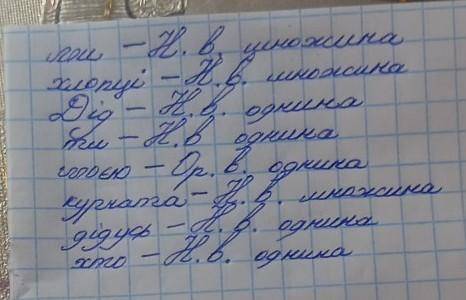 ми – Н. в. множина
хлопці – Н. в. множина
Дід – Н. в. однина
ти – Н. в однина
тобою – Ор. в. однина
курчата – Н. в. множина
дідусь – Н. в. однина
хто – Н. в. однина